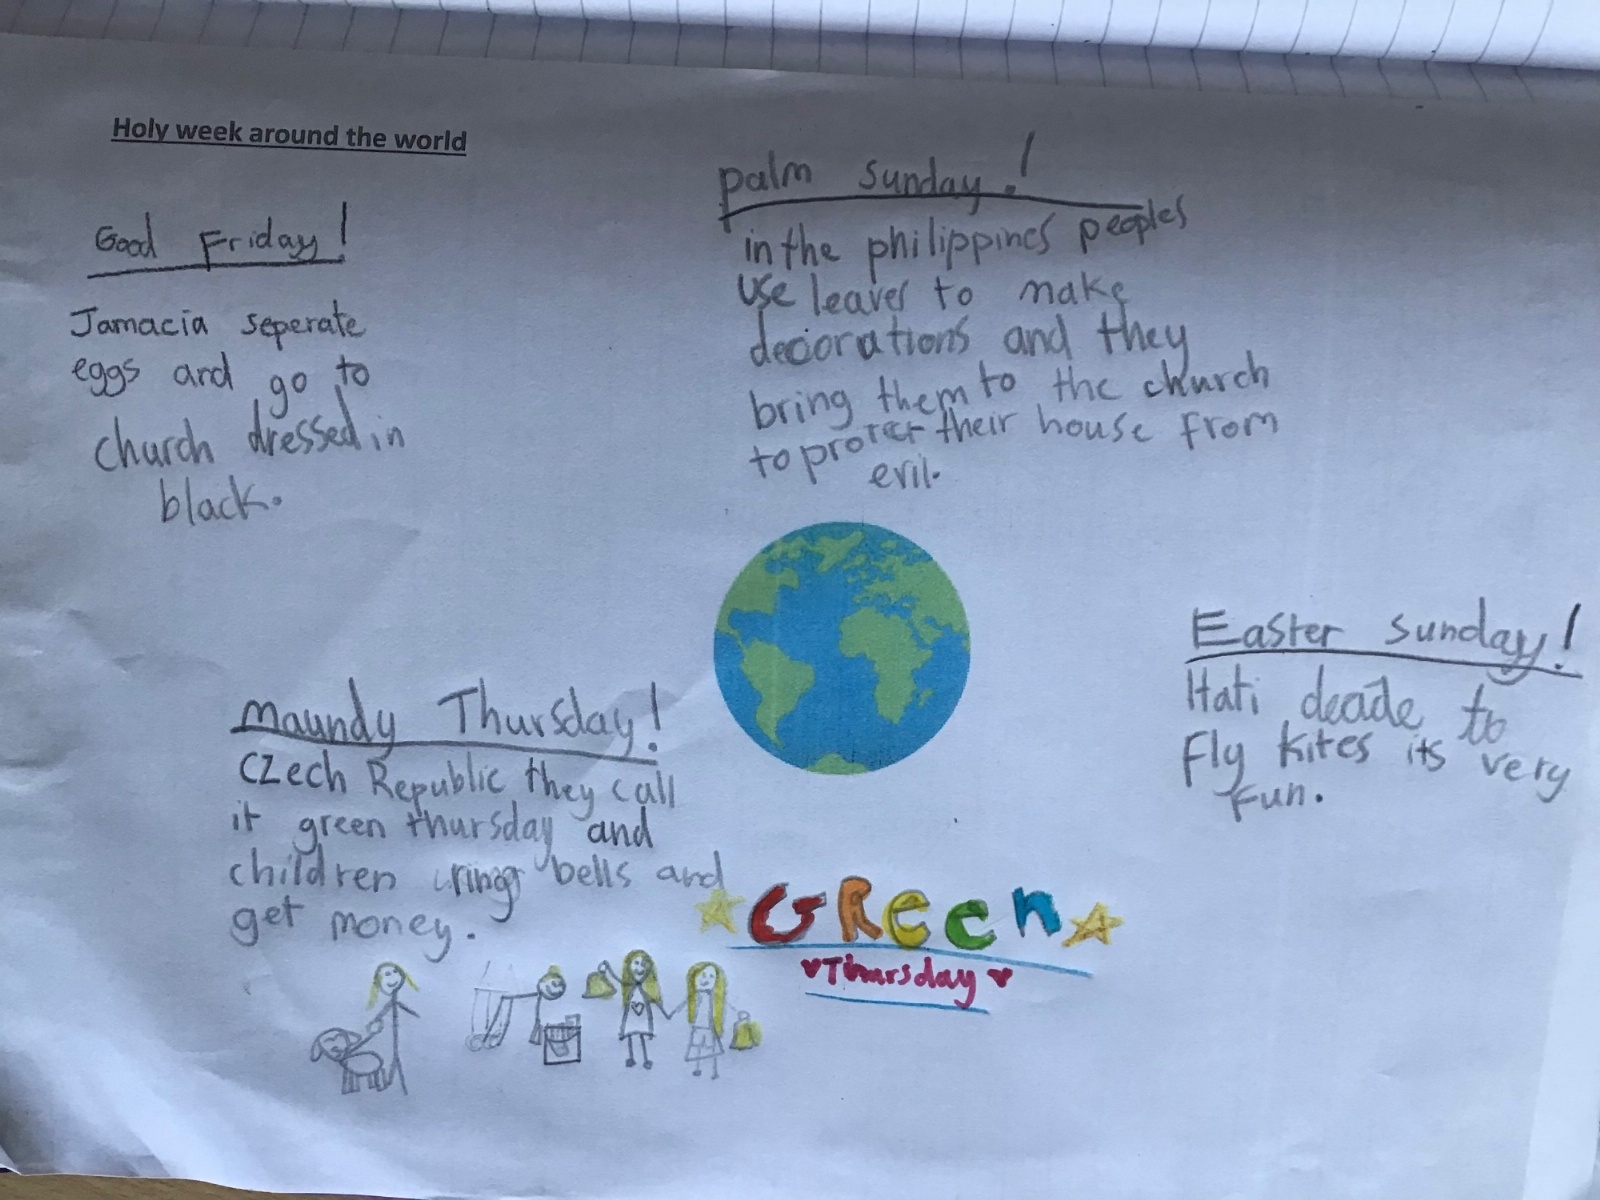 Holy week around the world
Good Friday!
Jamacia seperate
eggs and go to
church dressed in
black.
palm sunday!
in the philippines peoples
use leaves to make
decorations and they
bring them to the church
to protect their house from
evil.
Easter sunday!
Hati decide to
Fly kites its very
Fun.
maundy Thursday!
CZech Republic they call
it green thursday and
children ring bells and
get money.
GReen
Thursday